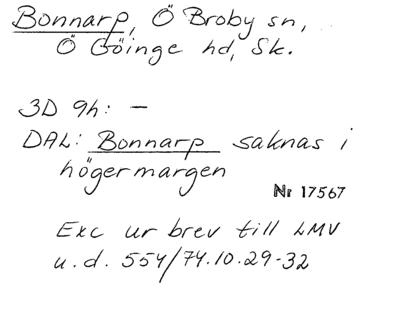 Bonnarp, Ö Broby sn,
Ö Göinge hd, Sk.
3D 9h: —
DAL: Bonnarp saknas i
högermargen
Nr 17567
Exc ur brev till LMV
u.d. 554/74.10.29-32